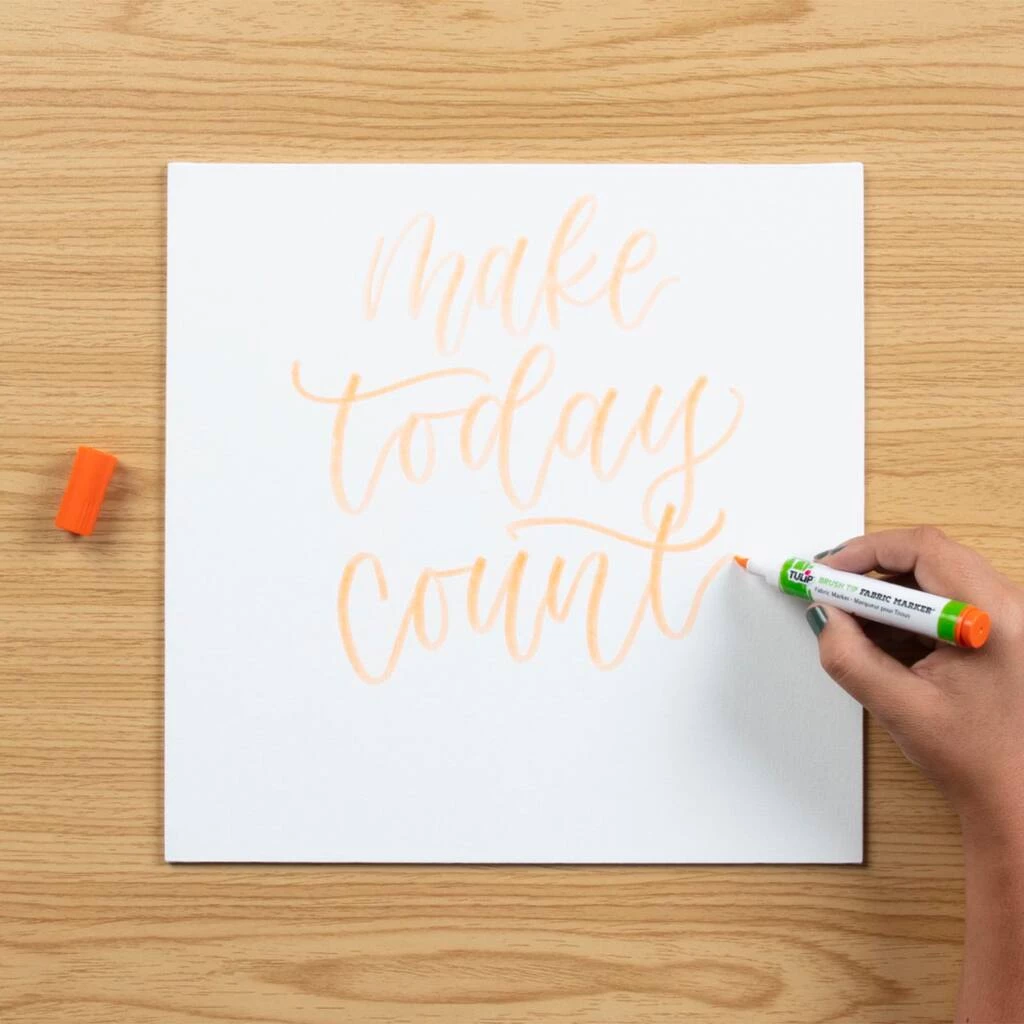 make
today
count
TULIP BRUSH TIP FABRIC MARKER
Fabric Marker • Marqueur pour Tissus